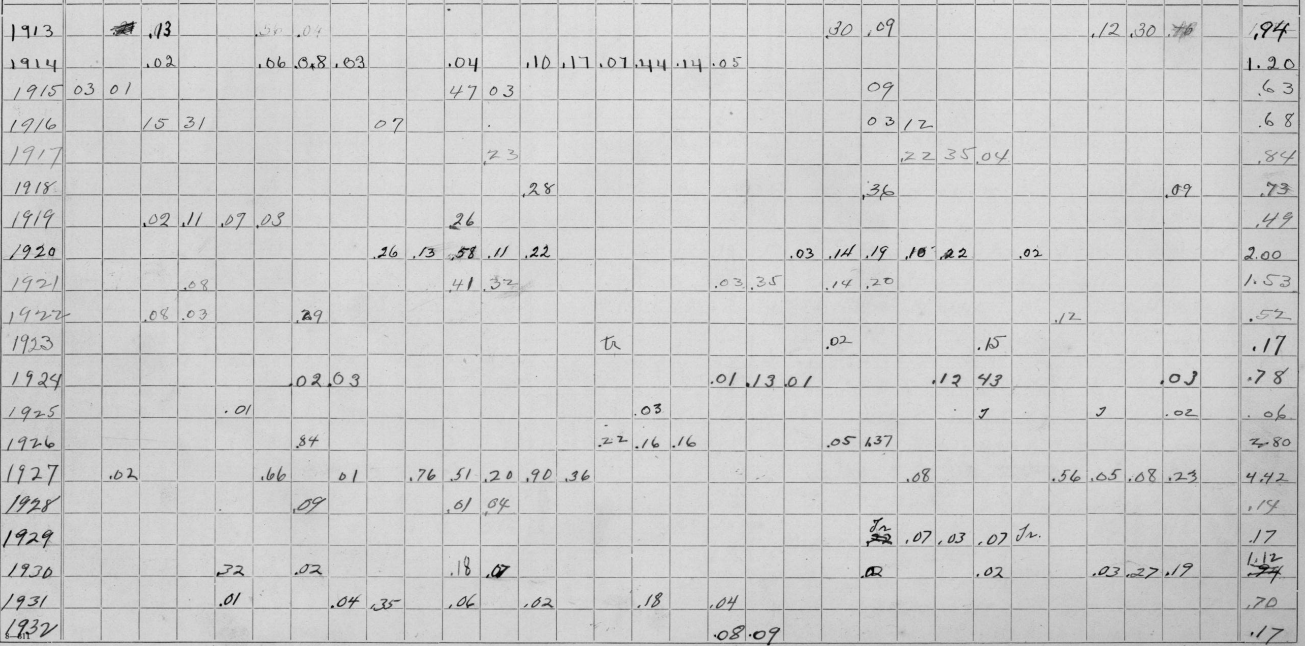 1913 .13 .04 .30 .09 .12 .30 .94
1914 .02 .06 .08 .03 .04 .10 .17 .07 .44 .14 .05 1.20
1915 03 01 47 03 09 .63
1916 15 31 07 03 12 .68
1917 .23 .22 35 .04 .84
1918 .28 .36 .09 .73
1919 .02 .11 .07 .03 .26 .49
1920 .26 .13 .58 .11 .22 .03 .14 .19 .10 .22 .02 2.00
1921 .08 .41 .32 .03 .35 .14 .20 1.53
1922 .08 .03 .29 .12 .52
1923 tr .02 .15 .17
1924 .02 .03 .01 .13 .01 .12 43 .03 .78
1925 .01 .03 T T .02 .06
1926 .84 .22 .16 .16 .05 1.37 2.80
1927 .02 .66 01 .76 .51 .20 .90 .36 .08 .56 .05 .08 .23 4.42
1928 .09 .01 .04 .14
1929 Tr .07 .03 .07 Tr. .17
1930 .32 .02 .18 .07 .02 .02 .03 .27 .19 1.12
1931 .01 .04 .35 .06 .02 .18 .04 .70
1932 .08 .09 .17